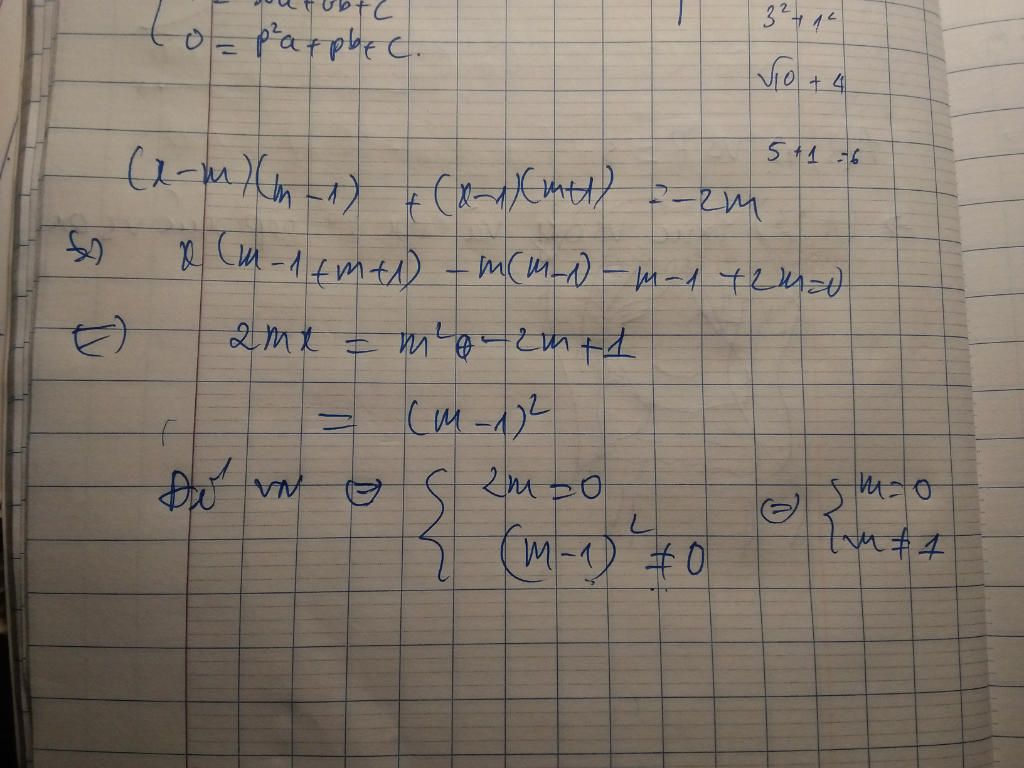 0 = p²a + pb + c.
3² + 1²
√10 + 4
5 + 1 = 6
(x - m)(m - 1) + (x - 1)(m + 1) = -2m
x (m - 1 + m + 1) - m(m - 1) - m - 1 + 2m = 0
2mx = m² - 2m + 1
= (m - 1)²
VN ⇔ { 2m = 0 ⇔ { m = 0
(m - 1)² ≠ 0 m ≠ 1